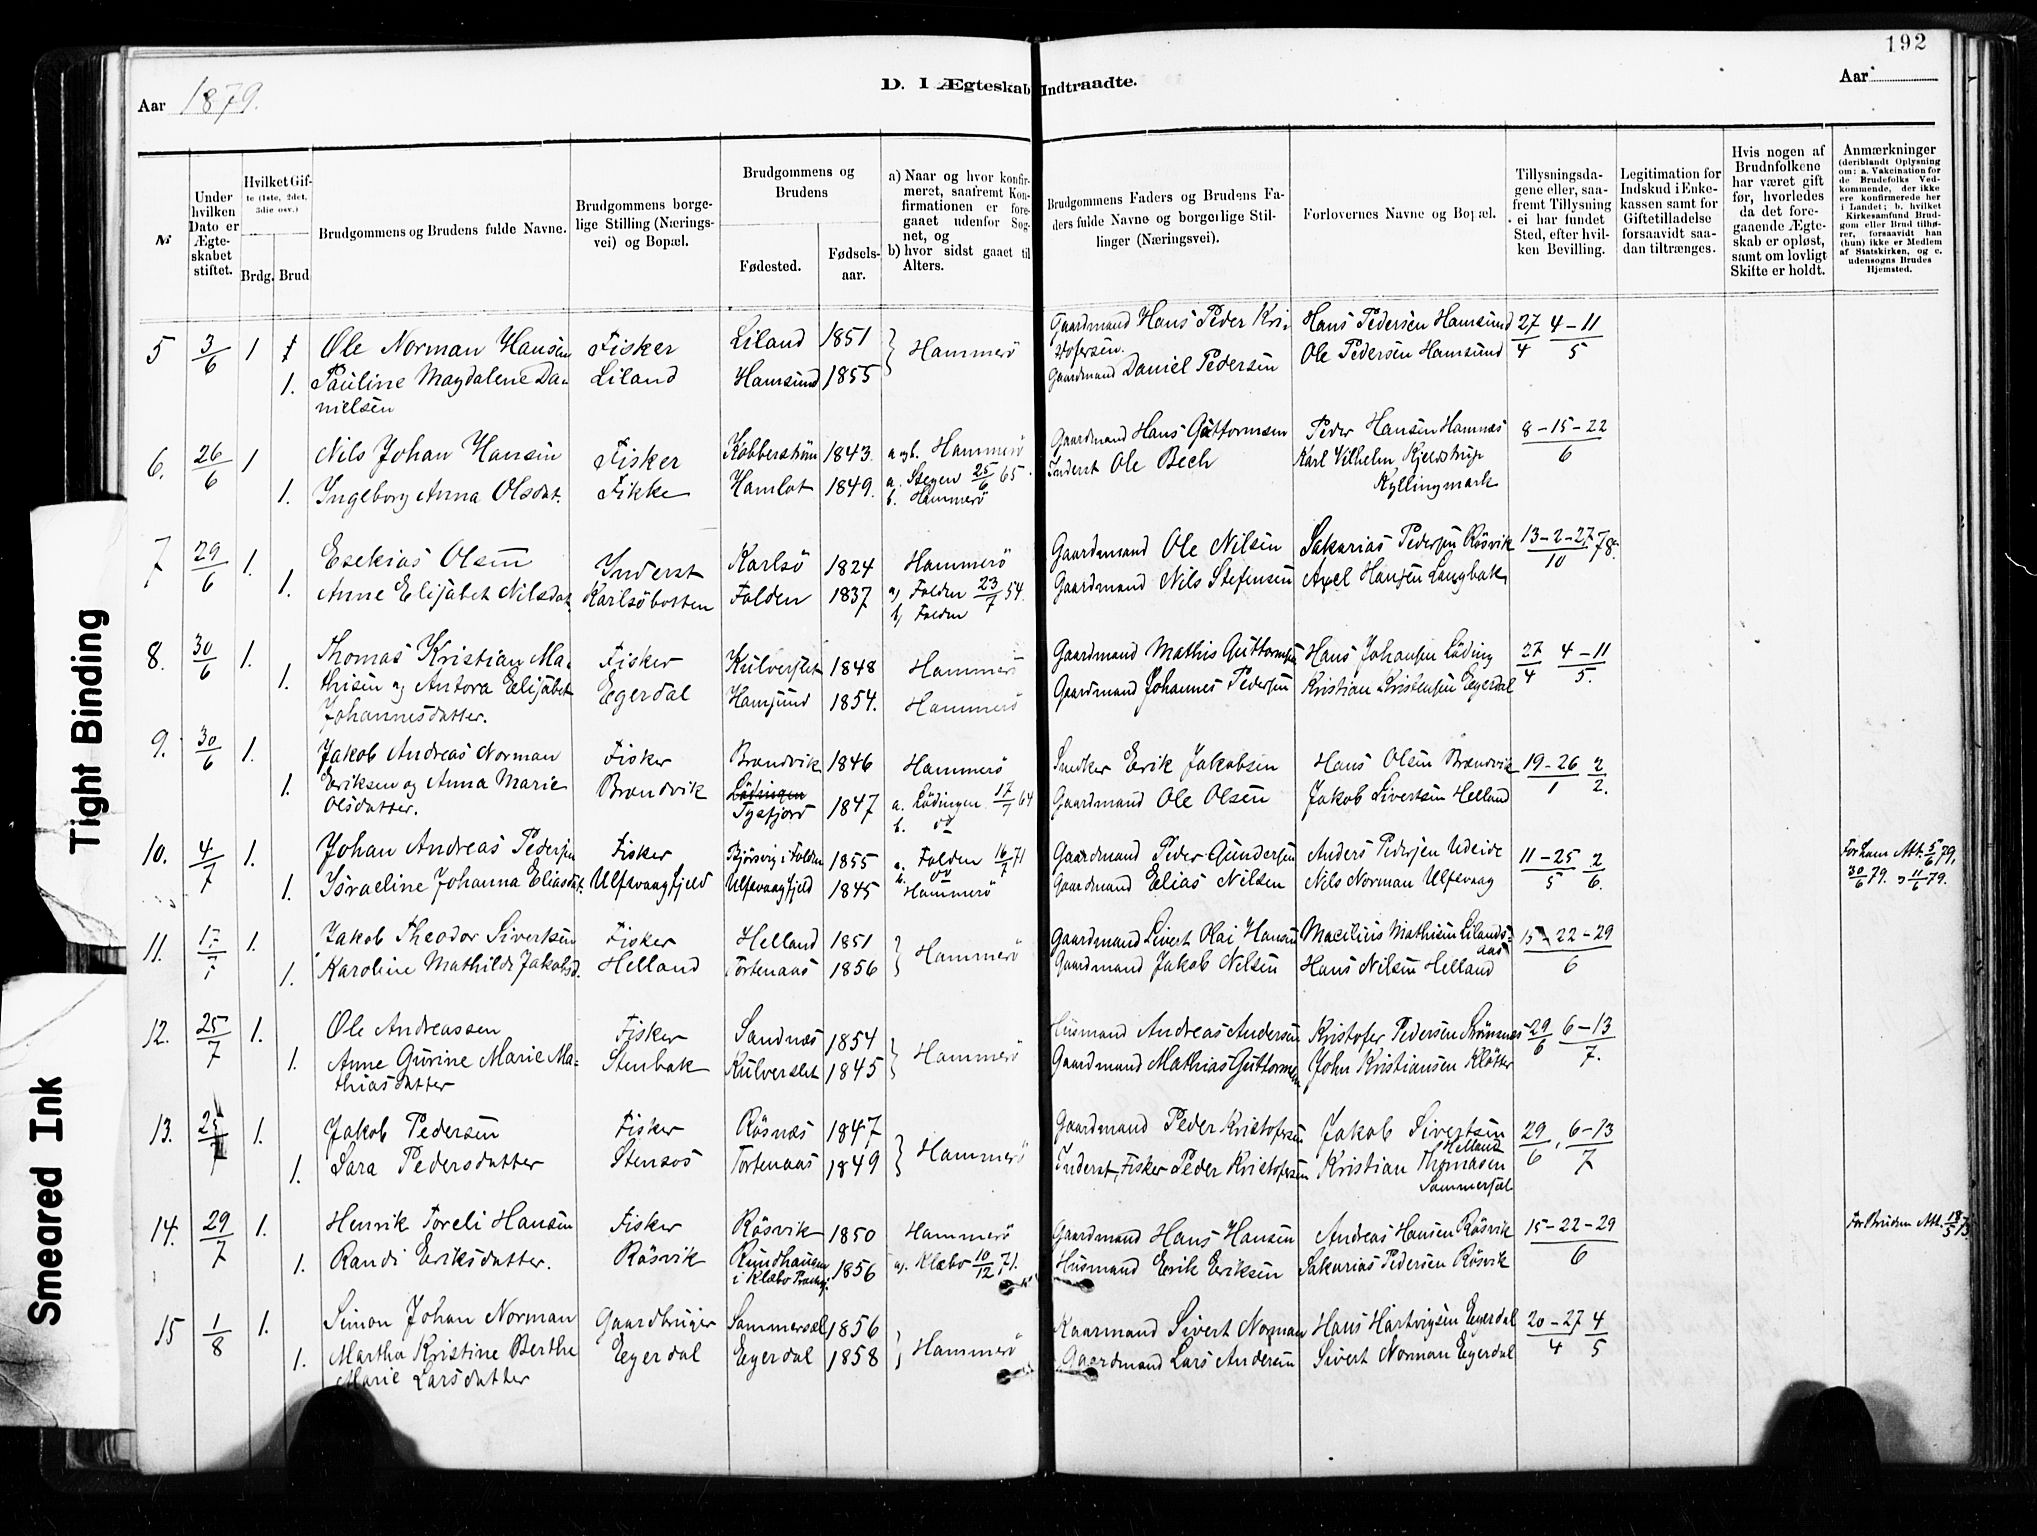 192
D. I Ægteskab Indtraadte.
Aar 1879.
Aar
Nr
Under hvilken Dato er Ægteskabet stiftet.
Hvilket Gifte (1ste, 2det, 3die osv.)
Brdg. Brud
Brudgommens og Brudens fulde Navne.
Brudgommens borgelige Stilling (Næringsvei) og Bopæl.
Brudgommens og Brudens
Fødested.
Fødselsaar.
a) Naar og hvor konfirmeret, saafremt Konfirmationen er foregaaet udenfor Sognet, og
b) hvor sidst gaaet til Alters.
Brudgommens Faders og Brudens Faders fulde Navne og borgerlige Stillinger (Næringsvei).
Forlovernes Navne og Bopæl.
Tillysningsdagene eller, saafremt Tillysning ei har fundet Sted, efter hvilken Bevilling.
Legitimation for Indskud i Enkekassen samt for Giftetilladelse forsaavidt saadan tiltrænges.
Hvis nogen af Brudnfolkene har været gift før, hvorledes da det foregaaende Ægteskab er opløst, samt om lovligt Skifte er holdt.
Anmærkninger
(deriblandt Oplysning om: a. Vakcination for de Brudefolks Vedkommende, der ikke ere konfirmerede her i Landet; b. hvilket Kirkesamfund Brudgom eller Brud tilhører, forsaavidt han (hun) ikke er Medlem af Statskirken, og c. udensogns Brudes Hjemsted.
5 3/6 1 Ole Norman Hansen Fisker Liland 1851 } Hammerø Gaardmand Hans Peder Kristofersen. Hans Pedersen Hamsund 27/4 4-11/5
1. Pauline Magdalene Danielsen Liland Hamsund 1855 Gaardmand Daniel Pedersen Ole Pedersen Hamsund
6. 26/6 1 Nils Johan Hansen Fisker Kobberström 1843. a og b. Hammerø Gaardmand Hans Guttormsen Peder Hansen Hamnæs 8-15-22/6
1. Ingeborg Anna Olsdat. Fikke Hamlot 1849. a. Stegen 25/6 65. b. Hammerø Inderst Ole Bech Karl Vilhelm Kjeldstrup Kyllingmark
7 29/6 1. Esekias Olsen Inderst Karlsö 1824 Hammerö Gaardmand Ole Nilsen Sakarias Pedersen Rösvik 13-2-27/10 78.
1. Anne Elisabet Nilsdat. Karlsöbotten Folden 1837 a) Folden 23/7 54 b) Folden Gaardmand Nils Stefensen Axel Hansen Langbak
8. 30/6 1. Thomas Kristian Mathisen og Antora Elisabet Johannesdatter. Fisker Kulverslet 1848 Hammerö Gaardmand Mathis Guttormsen Hans Johansen Löding 27/4 4-11/5.
1. Egerdal Hamsund 1854. Hammerö Gaardmand Johannes Pedersen Kristian Kristensen Egerdal
9. 30/6 1. Jakob Andreas Norman Eriksen og Anna Marie Olsdatter. Fisker Brandvik 1846 Hammerö Snedker Erik Jakobsen Hans Olsen Brandvik 19-26/1 2/2.
1. Brandvik Lödingen Tysfjord 1847 a. Lödingen 17/7 64 b. do Gaardmand Ole Olsen Jakob Sivertsen Helland
10. 4/7 1. Johan Andreas Pedersen Fisker Bjørsvig i Folden 1855 a. Folden 16/7 71 b. do Gaardmand Peder Gundersen Anders Pedersen Udeide 11-25/5 2/6. For ham Att. 5/6 79, 30/6 79. 11/6 79.
1. Israeline Johanna Eliasdat. Ulfsvaagfjeld Ulfsvaagfjeld 1845 Hammerö Gaardmand Elias Nilsen Nils Norman Ulfsvaag
11. 17/7 1. Jakob Theodor Sivertsen Fisker Helland 1851 } Hammerö Gaardmand Sivert Olai Hansen Macilius Mathisen Lilandsaas 15-22-29/6
1. Karoline Mathilde Jakobsd. Helland Tortenaas 1856 Gaardmand Jakob Nilsen Hans Nilsen Helland
12. 25/7 1. Ole Andreassen Fisker Sandnæs 1854 } Hammerö Husmand Andreas Andersen Kristofer Pedersen Strömsnæs 29/6 6-13/7.
1. Anne Gurine Marie Mathiasdatter Stenbak Kulverslet 1845 Gaardmand Mathias Guttormsen John Kristiansen Kløtter
13. 25/7 1. Jakob Pedersen Fisker Rösnæs 1847 } Hammerö Gaardmand Peder Kristofersen Jakob Sivertsen Helland 29/6, 6-13/7
1. Sara Pedersdatter Stensos Tortenaas 1849 Inderst, Fisker Peder Kristofersen Kristian Thomasen Sammersæl
14. 29/7 1. Henrik Toreli Hansen Fisker Rösvik 1850 Hammerö Gaardmand Hans Hansen Andreas Hansen Rösvik 15-22-29/6 For Bruden Att. 18/5 75
1. Randi Eriksdatter. Rösvik Rundhaugen i Klæbo Præstg. 1856 a). Klæbo 10/12 71. Husmand Erik Eriksen Sakarias Pedersen Rösvik
15 1/8 1. Simon Johan Norman Gaardbruger Sammersæl 1856 } Hammerö Kaarmand Sivert Norman Hans Hartvigsen Egerdal 20-27/4 4/5
1. Martha Kristine Berthe Marie Larsdatter Egerdal Egerdal 1858 Gaardmand Lars Andersen Sivert Norman Egerdal
Tight Binding
Smeared Ink